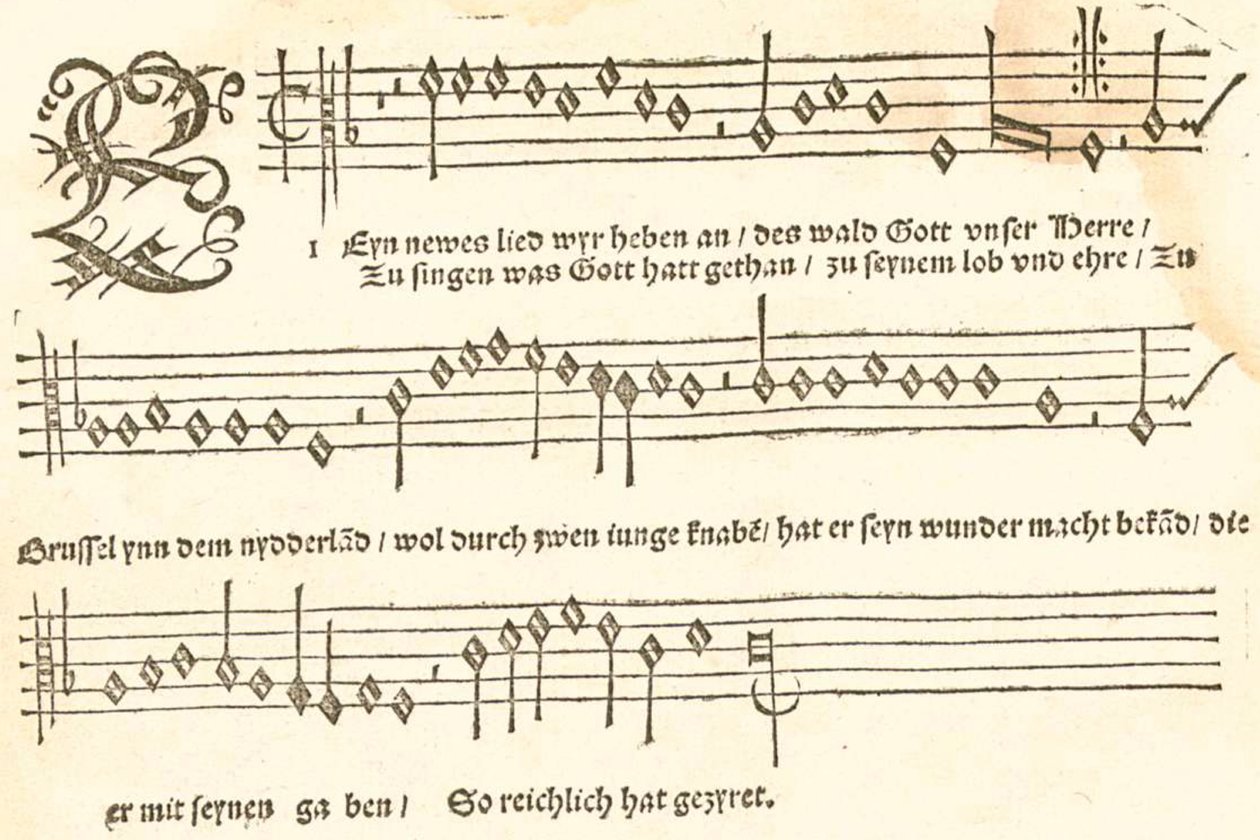 1 Eyn newes lied wyr heben an / des wald Gott vnser Herre /
Zu singen was Gott hatt gethan / zu seynem lob vnd ehre / Zu
Brussel ynn dem nydderlãd / wol durch zwen iunge knabẽ / hat er seyn wunder macht bekãd / die
er mit seynen ga ben / So reichlich hat gezyret.